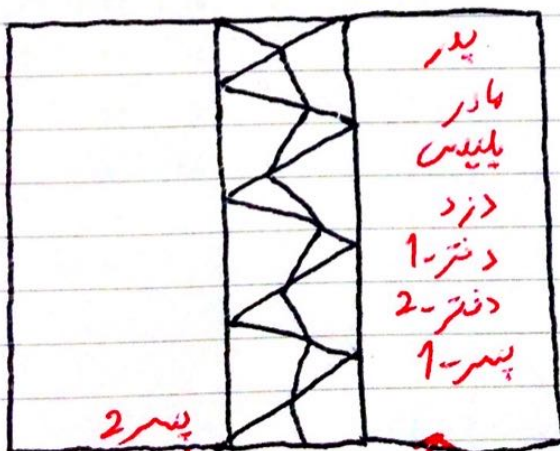 پدر
مادر
پلیس
دزد
دختر-1
دختر-2
پسر-1
پسر2